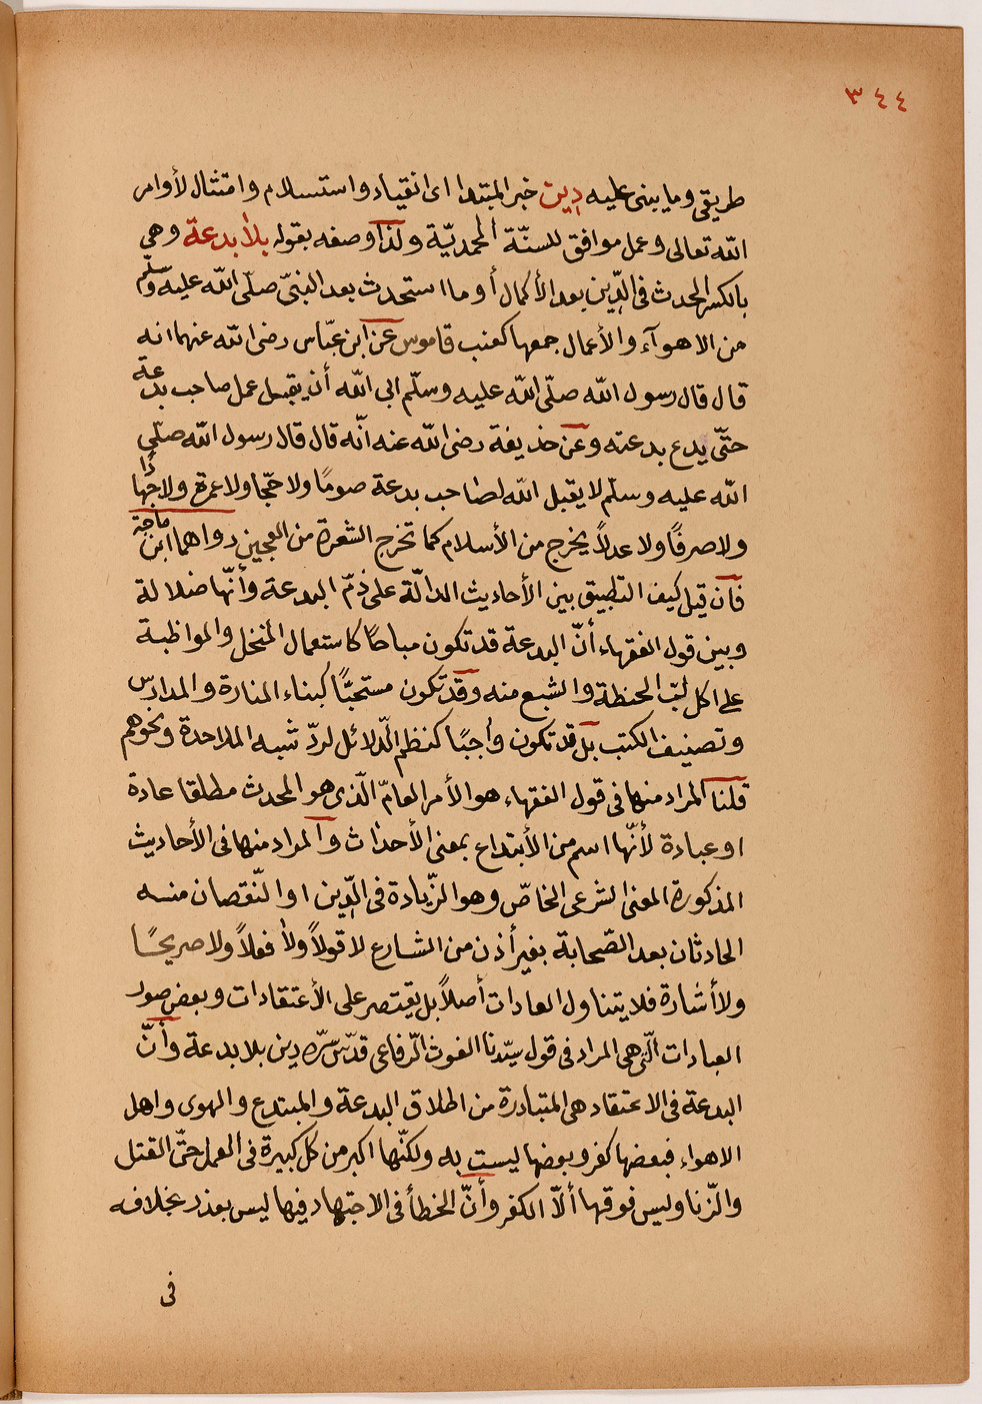 ٣٤٤
طريقى وما يبنى عليه دين خبر المبتدا اى انقياد واستسلام وامتثال لأوامر
الله تعالى وعمل موافق للسنّة المحمديّة ولذا وصفه بقوله بلا بدعة وهي
بالكسر الحدث فى الدّين بعد الأكمال أو ما استحدث بعد النبىّ صلّى الله عليه وسلّم
من الاهوآء والأعمال جمعها كعنب قاموس عن ابن عبّاس رضى الله عنهما انه
قال قال رسول الله صلّى الله عليه وسلّم ابى الله أن يقبل عمل صاحب بدعة
حتّى يدع بدعته وعن حذيفة رضى الله عنه انّه قال قال رسول الله صلّى
الله عليه وسلّم لا يقبل الله لصاحب بدعة صومًا ولا حجّا ولا عمرة ولا جهادًا
ولا صرفًا ولا عدلاً يخرج من الأسلام كما تخرج الشعرة من العجين رواهما ابن ماجة
فان قيل كيف التطبيق بين الأحاديث الدالّة على ذمّ البدعة وأنّها ضلالة
وبين قول الفقهاء أنّ البدعة قد تكون مباحًا كاستعمال المنخل والمواظبة
على اكل لبّ الحنطة والشبع منه وقد تكون مستحبًّا كبناء المنارة والمدارس
وتصنيف الكتب بل قد تكون واجبًا كنظم الدّلائل لردّ شبه الملاحدة ونحوهم
قلنا المراد منها فى قول الفقهاء هو الأمر العامّ الّذى هو المحدث مطلقا عادة
او عبادة لأنّها اسم من الأبتداع بمعنى الأحداث والمراد منها فى الأحاديث
المذكورة المعنى الشرعى الخاصّ وهو الزّيادة فى الدّين او النّقصان منه
الحادثان بعد الصّحابة بغير أذن من الشارع لا قولاً ولا فعلاً ولا صريحًا
ولا أشارة فلا يتناول العادات أصلاً بل يقتصر على الأعتقادات وبعض صور
العبادات الّتى هى المراد فى قول سيّدنا الغوث الرّفاعى قدّس سرّه دين بلا بدعة وأنّ
البدعة فى الاعتقاد هى المتبادرة من اطلاق البدعة والمبتدع والهوى واهل
الاهواء فبعضها كفر وبعضها ليست به ولكنّها اكبر من كل كبيرة فى العمل حتّى القتل
والزّنا وليس فوقها ألاّ الكفر وأنّ الخطأ فى الاجتهاد فيها ليس بعذر بخلافه
فى